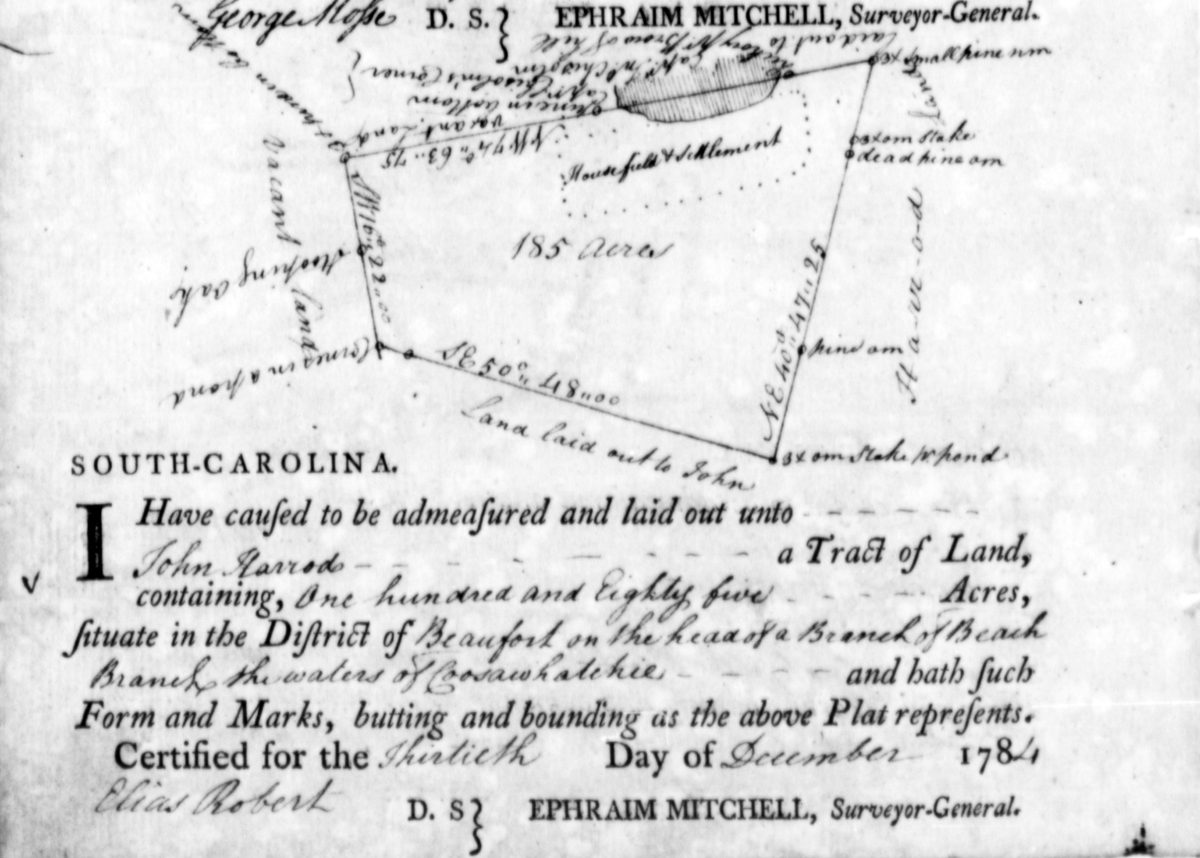 George Mosse D. S.} EPHRAIM MITCHELL, Surveyor-General.
laid out to
Capt. Chisolm
Corner
3x small pine nm
vacant Land
NW 74° " 63 " 75
House field & Settlement
3x om Stake
dead pine om
vacant land
SW 16° " 22 " 00
185 Acres
Stooping Oak
Harrod
NE 40° " 47 " 25
pine om
Corner in a pond
SE 50° " 48 " 00
Land laid out to John
3x om Stake in pond
SOUTH-CAROLINA.
I Have cauſed to be admeaſured and laid out unto
John Harrods a Tract of Land,
containing, One hundred and Eighty five Acres,
ſituate in the Diſtrict of Beaufort on the head of a Branch of Beach
Branch the waters of Coosawhatchie and hath ſuch
Form and Marks, butting and bounding as the above Plat repreſents.
Certified for the Thirtieth Day of December 1784
Elias Robert D. S} EPHRAIM MITCHELL, Surveyor-General.